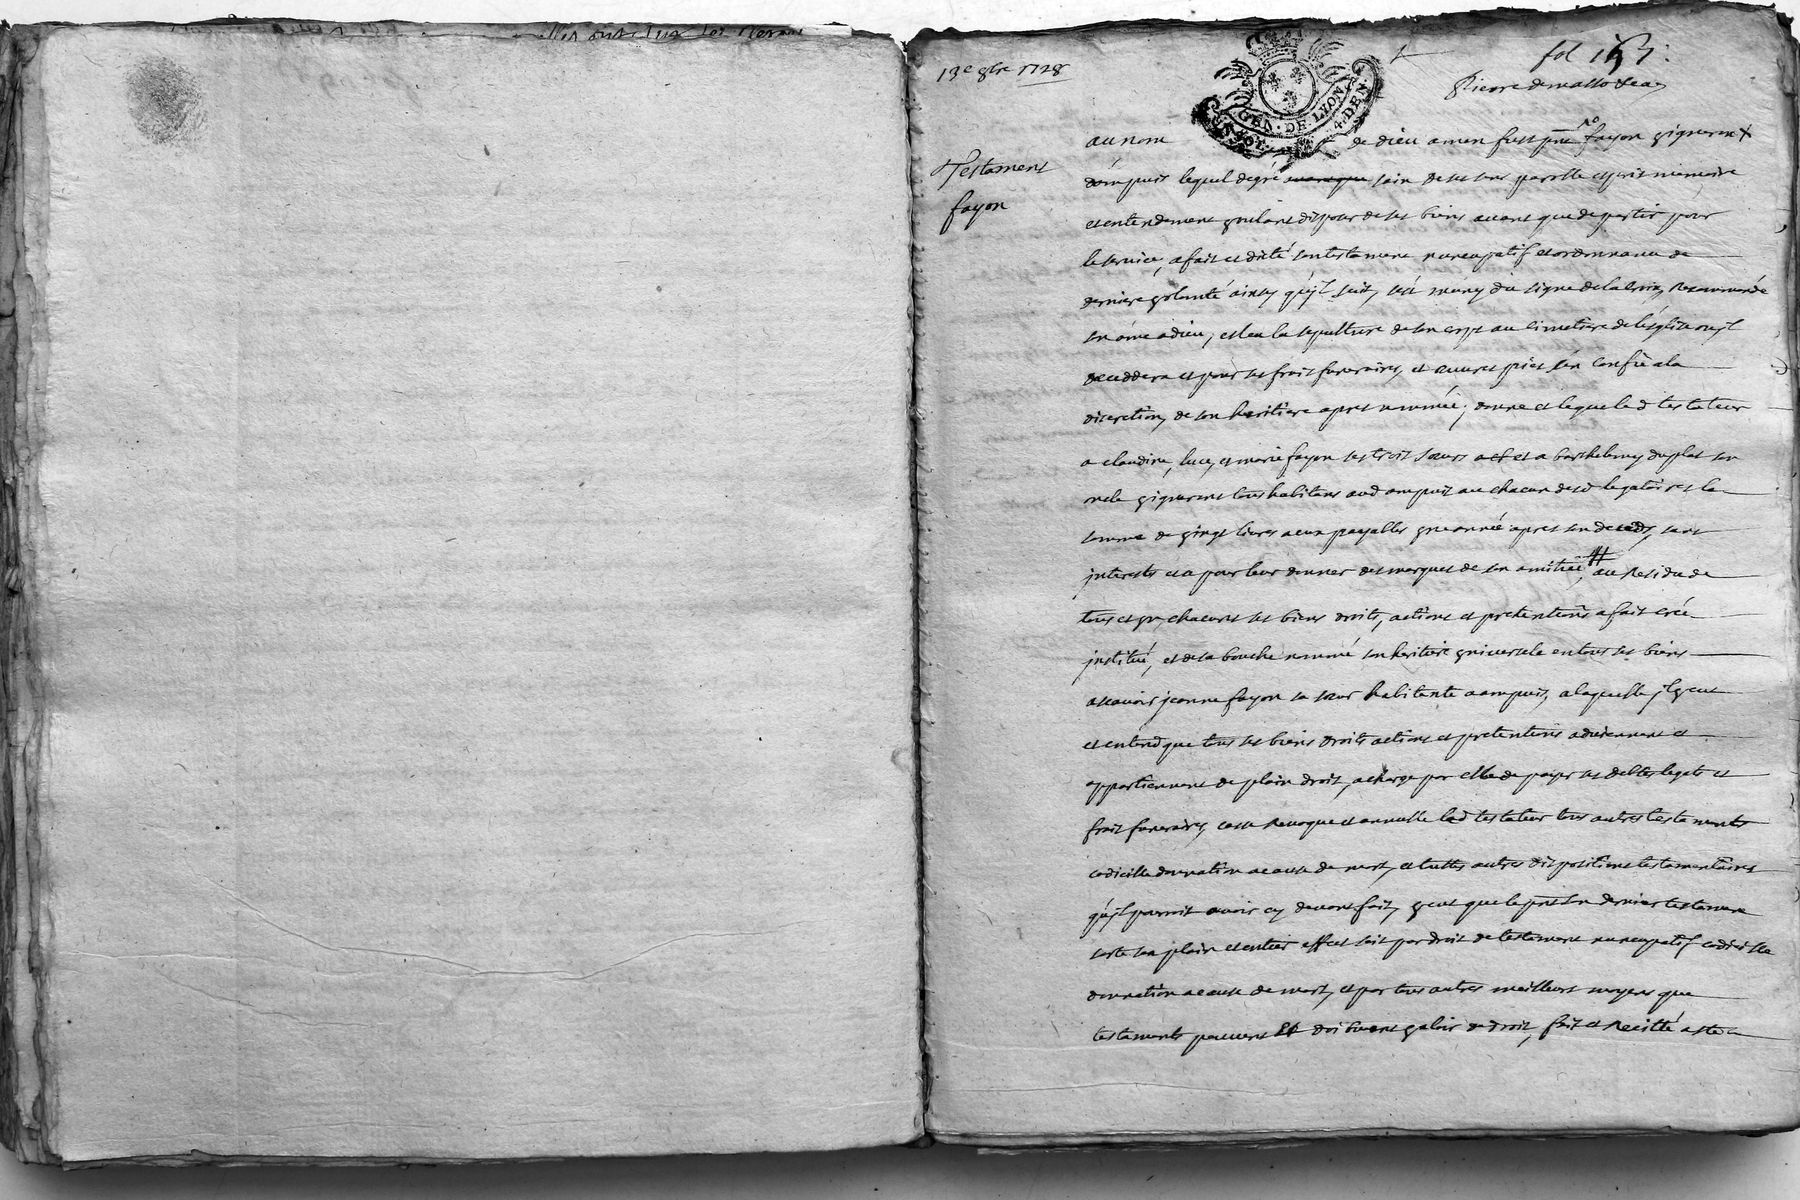 13e 8bre 1728
fol 153:
GEN · DE · LYON · 4 · DEN
Testament
fayon
au nom de dieu amen fust pnt fayon vigneron
d'ampuis lequel degré sain de ses sens parolle esprit memoire
et entendement voulant disposer de ses biens avant que de partir pour
le service, a fait et dicté son testament nuncupatif et ordonnance de
derniere volonté ainsy qu'jl suit, s'est muny du signe de la croix, Recommandé
son ame a dieu, esleu la sepulture de son corps au cimetiere de l'eglise ou jl
deceddera et pour ses frais funeraires, et œuvres pies s'en confie a la
discretion, de son heritiere apres nommée; donne et legue led testateur
a claudine, luce, et marie fayon ses trois sœurs et a barthelemy duplat son
oncle vignerons tous habitans aud ampuis au chacun desd legataires la
somme de vingt livres a eux payables une année apres son deceds, sans
jnterests et a pour leur donner des marques de son amitiée, # au Residu de
tous et un chacuns ses biens droits, actions et pretentions a fait créé
jnstitué, et de sa bouche nommé son heritiere vniverselle en tous ses biens
ascavoir jeanne fayon sa sœur habitante a ampuis, a laquelle jl veut
et entend que tous ses biens droits actions et pretentions adviennent et
appartiennent de plain droit, a charge par elle de payer ses debtes legats et
frais funeraires, casse Revoque et annulle led testateur tous autres testaments
codicille donnation a cause de mort, et tuttes autres dispositions testamentaires
qu'jl pourroit avoir cy devant fait, veut que le pnt son dernier testament
sorte son plain et entier effect soit par droit de testament nuncupatif codicille
donnation a cause de mort, et par tous autres meilleurs moyens que
testaments peuvent et doibvent valoir de droit, fait et Recitté aste